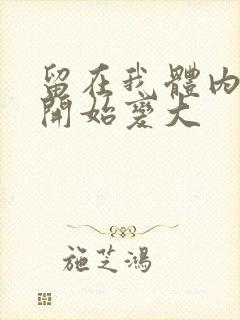 留在我體內
開始變大
施芝鴻